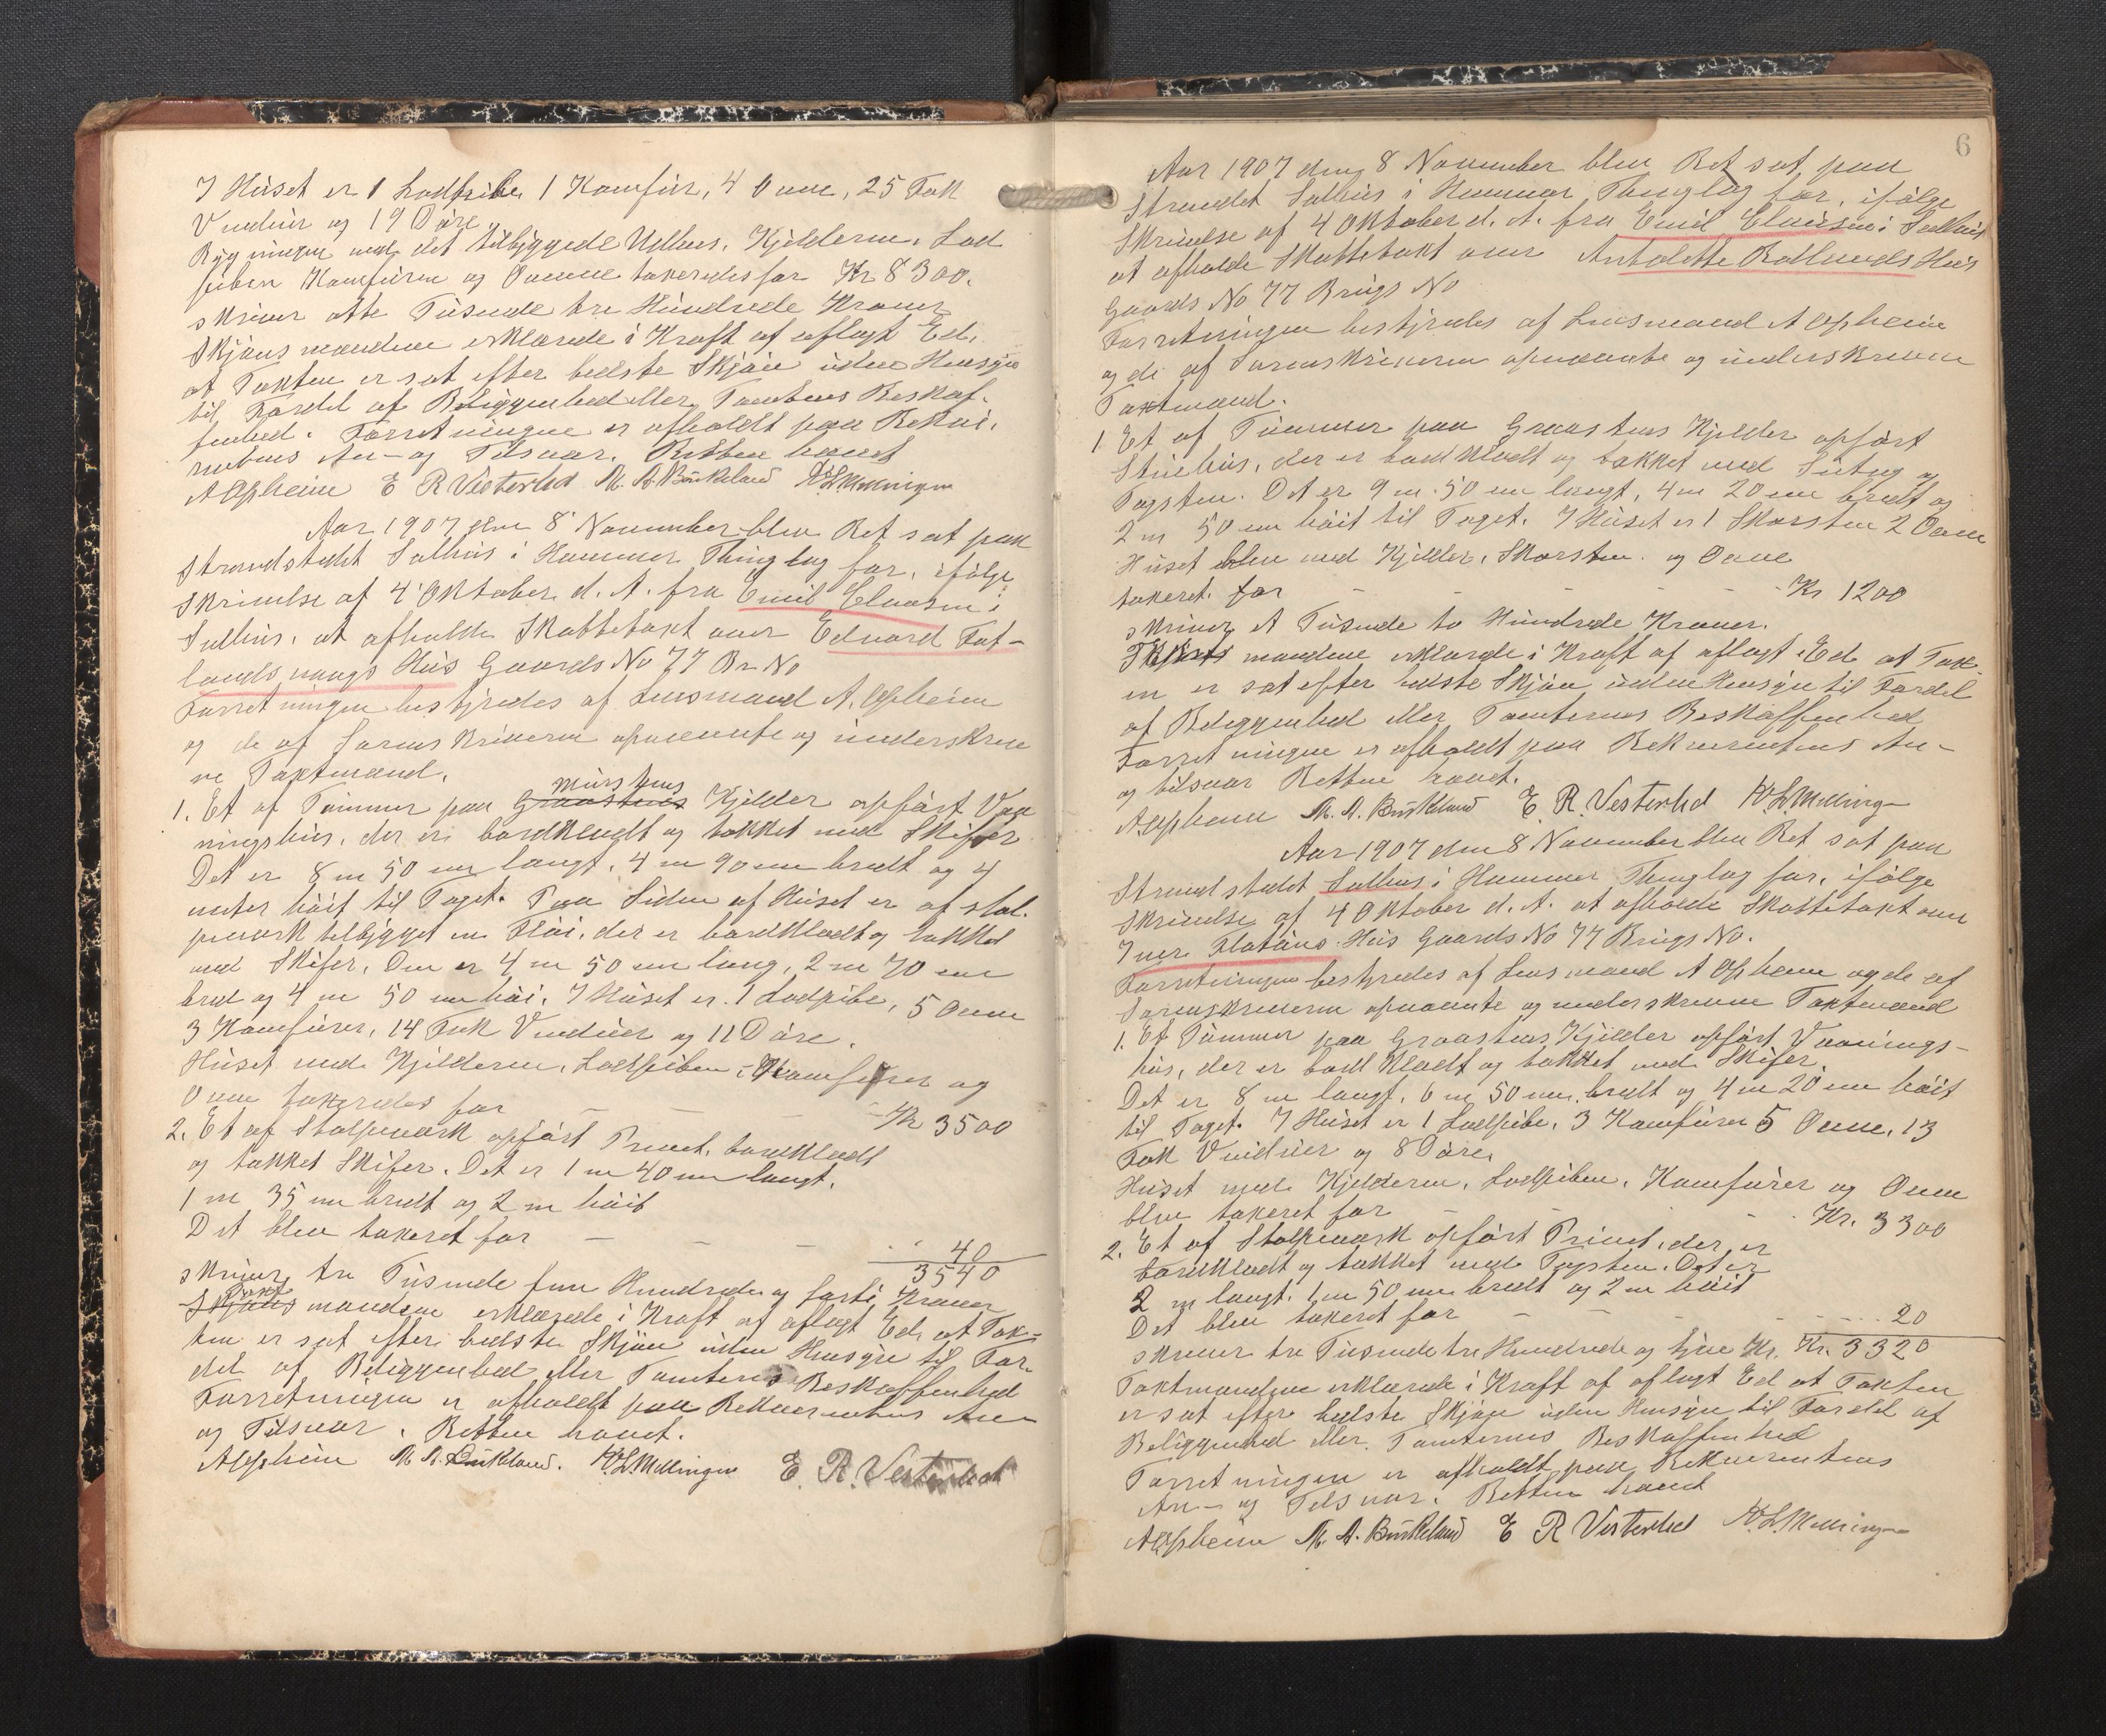 I Huset er 1 Lodpibe 1 Komfur, 4 Ovne, 25 Fak
Vinduer og 19 Døre.
Bygningen med det tilbyggede Udhus, Kjelderne, Lod
piben Komfuren og Ovnene taxeredes for Kr 8300.
skriver otte Tusinde tre Hundrede Kroner
Skjønsmændene erklærede i Kraft af aflagt Ed,
at Taxten er sat efter bedste Skjøn uden Hensyn
til Fordel af Beliggenhed eller Tomtens Beskaf-
fenhed. Forretningen er afholdt paa Rekvi-
rentens An- og Tilsvar. Retten hævet
A Opheim E R Vesterlid M. A. Birkeland H L Mellingen
Aar 1907 den 8 November blev Ret sat paa
Strandstedet Salhus i Hammer Thinglag for, ifølge
Skrivelse af 4 Oktober d. A. fra Emil Clausen i
Salhus, at afholde Skattetaxt over Edvard Tot-
landsvaags Hus Gaards No 77 Br No
Forretningen bestyredes af Lensmand A. Opheim
og de af Sorenskriveren opnævnte og underskrev
ne Taxtmænd.
murstens
1. Et af Tømmer paa Graastens Kjelder opført Vaa
ningshus, der er bordklædt og tækket med Skifer
Det er 8 m 50 cm langt, 4 m 90 cm bredt og 4
meter høit til Taget. Paa Siden af Huset er af stol-
peværk tilbygget en Fløi, der er bordklædt og tækket
med Skifer. Den er 4 m 50 cm lang, 2 m 70 cm
bred og 4 m 50 cm høi. I Huset er 1 Lodpibe, 5 Ovne
3 Komfurer, 14 Fak Vinduer og 11 Døre.
Huset med Kjelderen, Lodpiben, Komfurer og
Ovne taxeredes for - - - Kr 3500
2. Et af Stolpeværk opført Privet, bordklædt
og tækket Skifer. Det er 1 m 40 cm langt,
1 m 35 cm bredt og 2 m høit
Det blev taxeret for - - - 40
3540
skriver tre Tusinde fem Hundrede og førti Kroner
Taxt
Skjøns mændene erklærede i Kraft af aflagt Ed, at Tax-
ten er sat efter bedste Skjøn uden Hensyn til For-
del af Beliggenhed eller Tomtens Beskaffenhed
Forretningen er afholdt paa Rekvirentens An-
og Tilsvar. Retten hævet.
A Opheim M. A. Birkeland. H L Mellingen E. R. Vesterlid
6
Aar 1907 den 8 November blev Ret sat paa
Strandst Salhus i Hammer Thinglag for, ifølge
Skrivelse af 4 Oktober d. A. fra Emil Clausen i Salhus
at afholde Skattetaxt over Antolette Rollands Hus
Gaards No 77 Brugs No
Forretningen bestyredes af Lensmand A Opheim
og de af Sorenskriveren opnævnte og underskrevne
Taxtmænd.
1 Et af Tømmer paa Graastens Kjelder opført
Stuehus, der er bordklædt og tækket med Sutag og
Tagsten. Det er 9 m. 50 cm langt, 4 m 20 cm bredt og
2 m 50 cm høit til Taget. I Huset er 1 Skorsten 2 Ovne
Huset blev med Kjelder, Skorsten og Ovne
taxeret for - - - - Kr 1200
skriver et Tusinde to Hundrede Kroner.
mændene erklærede i Kraft af aflagt Ed at Tax
en er sat efter bedste Skjøn uden Hensyn til Fordel
af Beliggenhed eller Tomternes Beskaffenhed
Forretningen er afholdt paa Rekvirentens An-
og tilsvar Retten hævet.
A Opheim M. A. Birkeland E. R. Vesterlid H L Mellingen
Aar 1907 den 8 November blev Ret sat paa
Strandstedet Salhus i Hammer Thinglag for, ifølge
Skrivelse af 4 Oktober d. A. at afholde Skattetaxt over
Iver Flatøns Hus Gaards No 77 Brugs No.
Forretningen bestyredes af Lensmand A Opheim og de af
Sorenskriveren opnævnte og underskrevne Taxtmænd
1. Et Tømmer paa Graastens Kjelder opført Vaanings-
hus, der er bordklædt og tækket med Skifer.
Det er 8 m langt, 6 m 50 cm bredt og 4 m 20 cm høit
til Taget. I Huset er 1 Lodpibe, 3 Komfurer 5 Ovne, 13
Fak Vinduer og 8 Døre.
Huset med Kjelderen, Lodpiben, Komfurer og Ovne
blev taxeret for - - - Kr. 3300
2. Et af Stolpeværk opført Privet, der er
bordklædt og tækket med Tagsten. Det er
2 m langt, 1 m 50 cm bredt og 2 m høit
Det blev taxeret for - - - 20
skriver tre Tusinde tre Hundrede og tyve Kr. Kr. 3320
Taxtmændene erklærede i Kraft af aflagt Ed at Taxten
er sat efter bedste Skjøn uden Hensyn til Fordel af
Beliggenhed eller Tomternes Beskaffenhed
Forretningen er afholdt paa Rekvirentens
An- og Tilsvar. Retten hævet
A Opheim M. A. Birkeland E R Vesterlid H. L. Mellingen